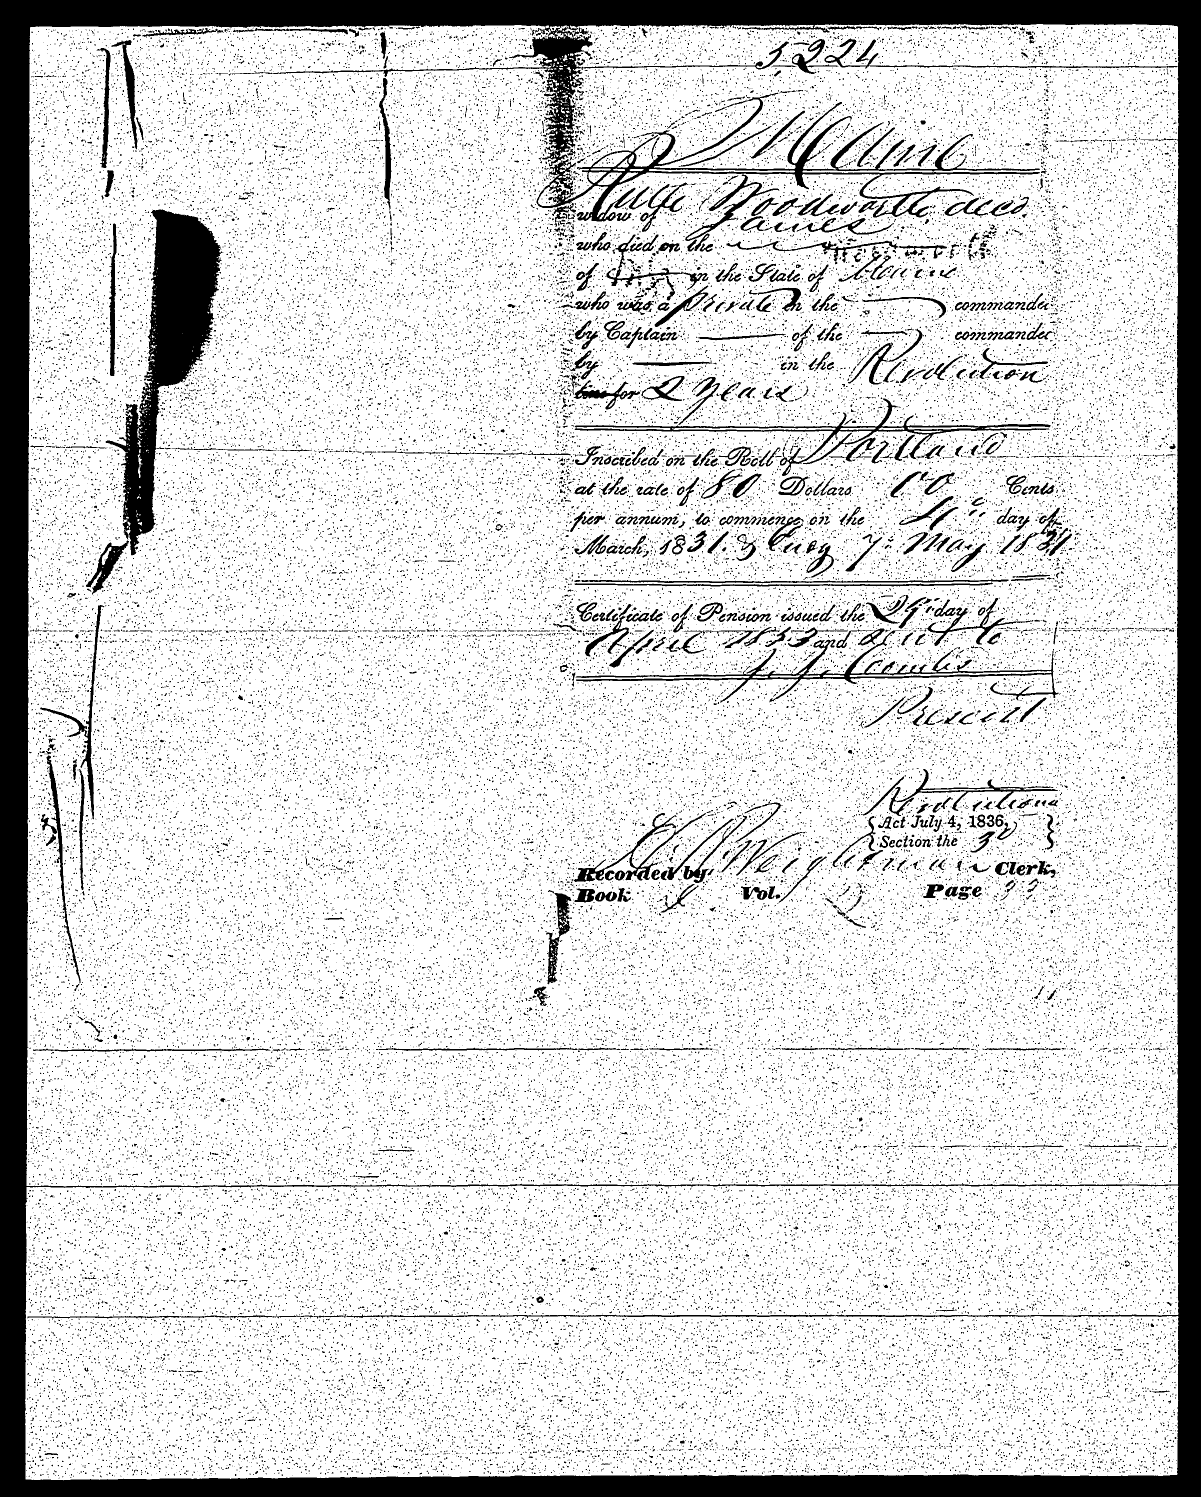 5,224
Maine
Ruth Woodworth decd.
widow of James
who died on the
of in the State of Maine
who was a private in the commanded
by Captain of the commanded
by in the Revolution
time for 2 Years
Inscribed on the Roll of Portland
at the rate of 80 Dollars 00 Cents
per annum, to commence on the 4th day of
March, 1831. & Endg 7th May 1831
Certificate of Pension issued the 29th day of
April 1853 and sent to
J. J. Coombs
Present
Revolutiona
Act July 4, 1836,
Section the 3d
Recorded by R. Weightman Clerk,
Book Vol. Page